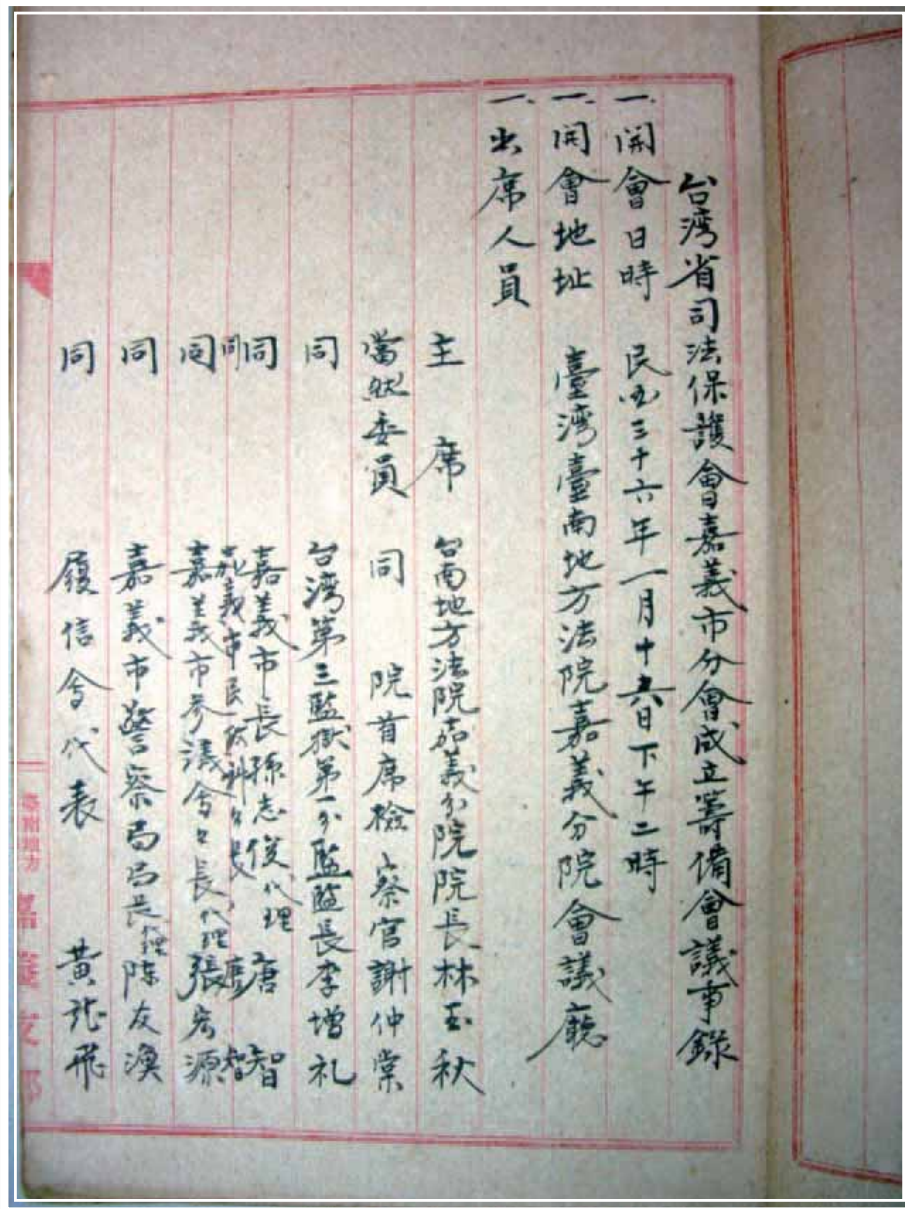 台湾省司法保護會嘉義市分會成立籌備會議事錄
一、開會日時　民国三十六年一月十六日下午二時
一、開會地址　臺湾臺南地方法院嘉義分院會議廳
一、出席人員
主　席　台南地方法院嘉義分院院長　林玉秋
當然委員　同　院首席檢察官　謝仲棠
同　台湾第三監獄第一分監監長　李增礼
同　嘉義市長孫志俊代理　唐智
同　嘉義市民政科々長　唐智
同　嘉義市参議会々長代理　張宏源
同　嘉義市警察局局長代理　陈友漢
同　履信会代表　黃飛
嘉義支部